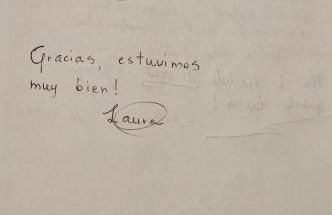 Gracias, estuvimos
muy bien!
Laura